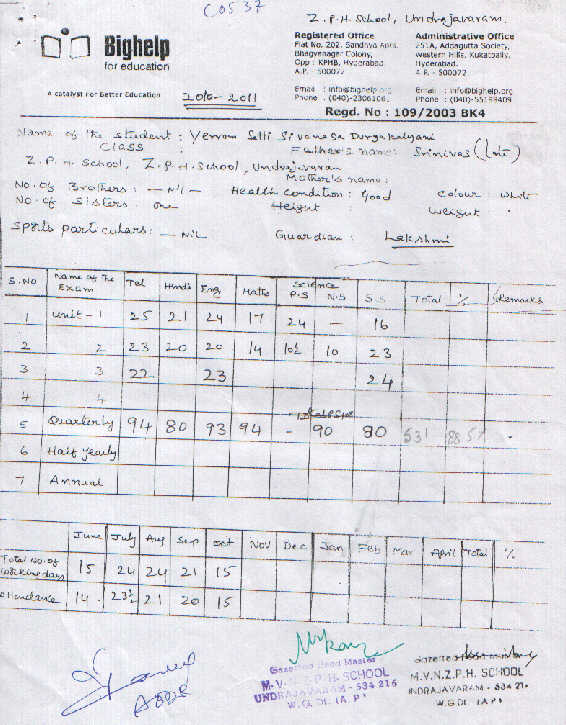 COS 37
Z.P.H. School, Undrajavaram.
Bighelp
for education
A catalyst For Better Education
2010-2011
Registered Office
Flat No. 202, Sandhya Apts.
Bhagyanagar Colony,
Opp : KPHB, Hyderabad.
A.P. - 500072
Email : info@bighelp.org
Administrative Office
251A, Addagutta Society,
Western Hills, Kukatpally,
Hyderabad.
A.P. - 500072
Email : info@bighelp.org
Phone : (040)-55199409
Regd. No : 109/2003 BK4
Name of the student : Siva Durga kalyani
CLASS : Father's name: Srinivas (Late)
Z.P.H. School, Z.P.H. School, Undrajavaram
Mother's name:
No. of Brothers : - Nil - Health Condition : Good colour : White
No. of Sisters : One Height Weight .
Sports particulars : - Nil Guardian : Lakshmi
S.NO Name of the Exam Tel Hindi Eng Maths Science P.S N.S S.S Total % Remarks
1 unit - 1 25 21 24 17 24 - 16
2 2 23 20 20 14 10½ 10 23
3 3 22 23 24
4 4
5 Quarterly 94 80 93 94 - 90 80 531 88.5%
6 Half yearly
7 Annual
June July Aug Sep Oct Nov Dec Jan Feb Mar April Total %
Total No. of working days 15 24 24 21 15
Attendance 14 23½ 21 20 15
Gazetted Head Master
M.V.N.Z.P.H. SCHOOL
UNDRAJAVARAM - 534 216
W.G. Dt. (A.P)
M.V.N.Z.P.H. SCHOOL
W.G.Dt. (A.P)